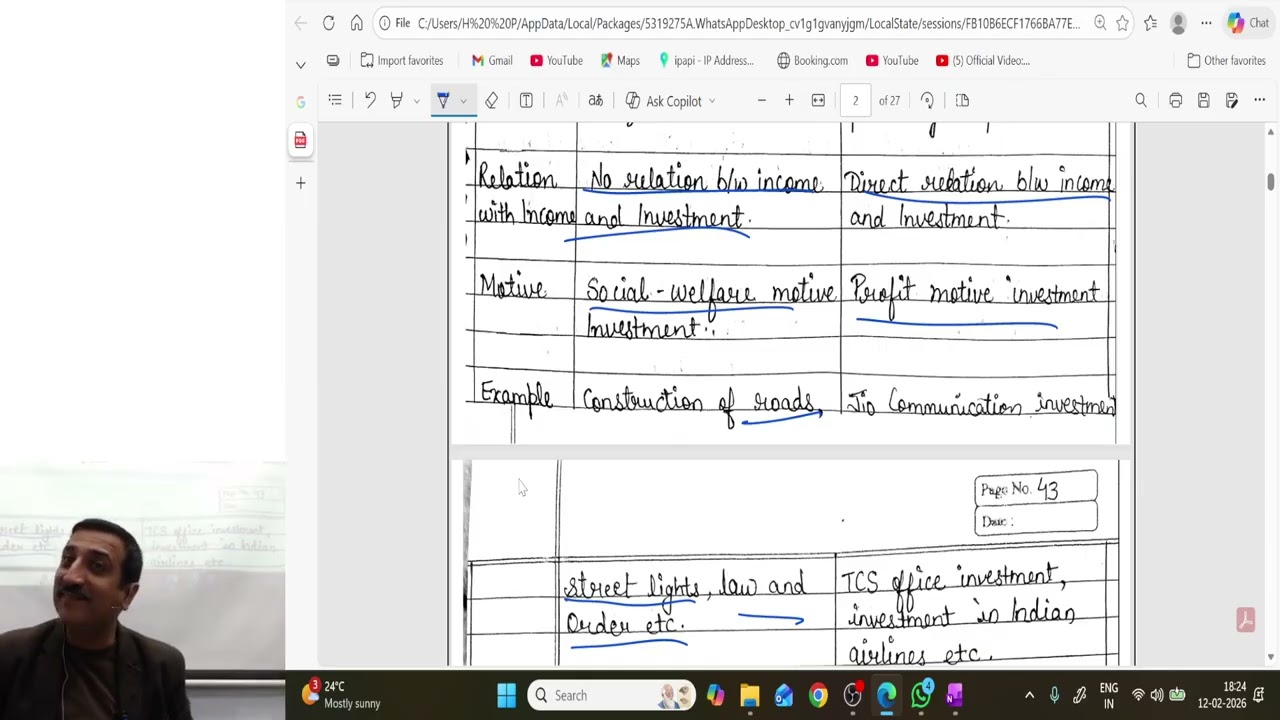 File C:/Users/H%20%20P/AppData/Local/Packages/5319275A.WhatsAppDesktop_cv1g1gvanyjgm/LocalState/sessions/FB10B6ECF1766BA77E...
Chat
Import favorites Gmail YouTube Maps ipapi - IP Address... Booking.com YouTube (5) Official Video:... Other favorites
Ask Copilot 2 of 27
Relation No relation b/w income Direct relation b/w income
with Income and Investment. and Investment.
Motive Social-welfare motive Profit motive investment
Investment.
Example Construction of roads, Jio Communication investment
Page No. 43
Date :
street lights, law and TCS office investment,
Order etc. investment in Indian
airlines etc.
TCS office investment,
investment in Indian
airlines etc
3 24°C
Mostly sunny
Search
4
ENG
IN
18:24
12-02-2026